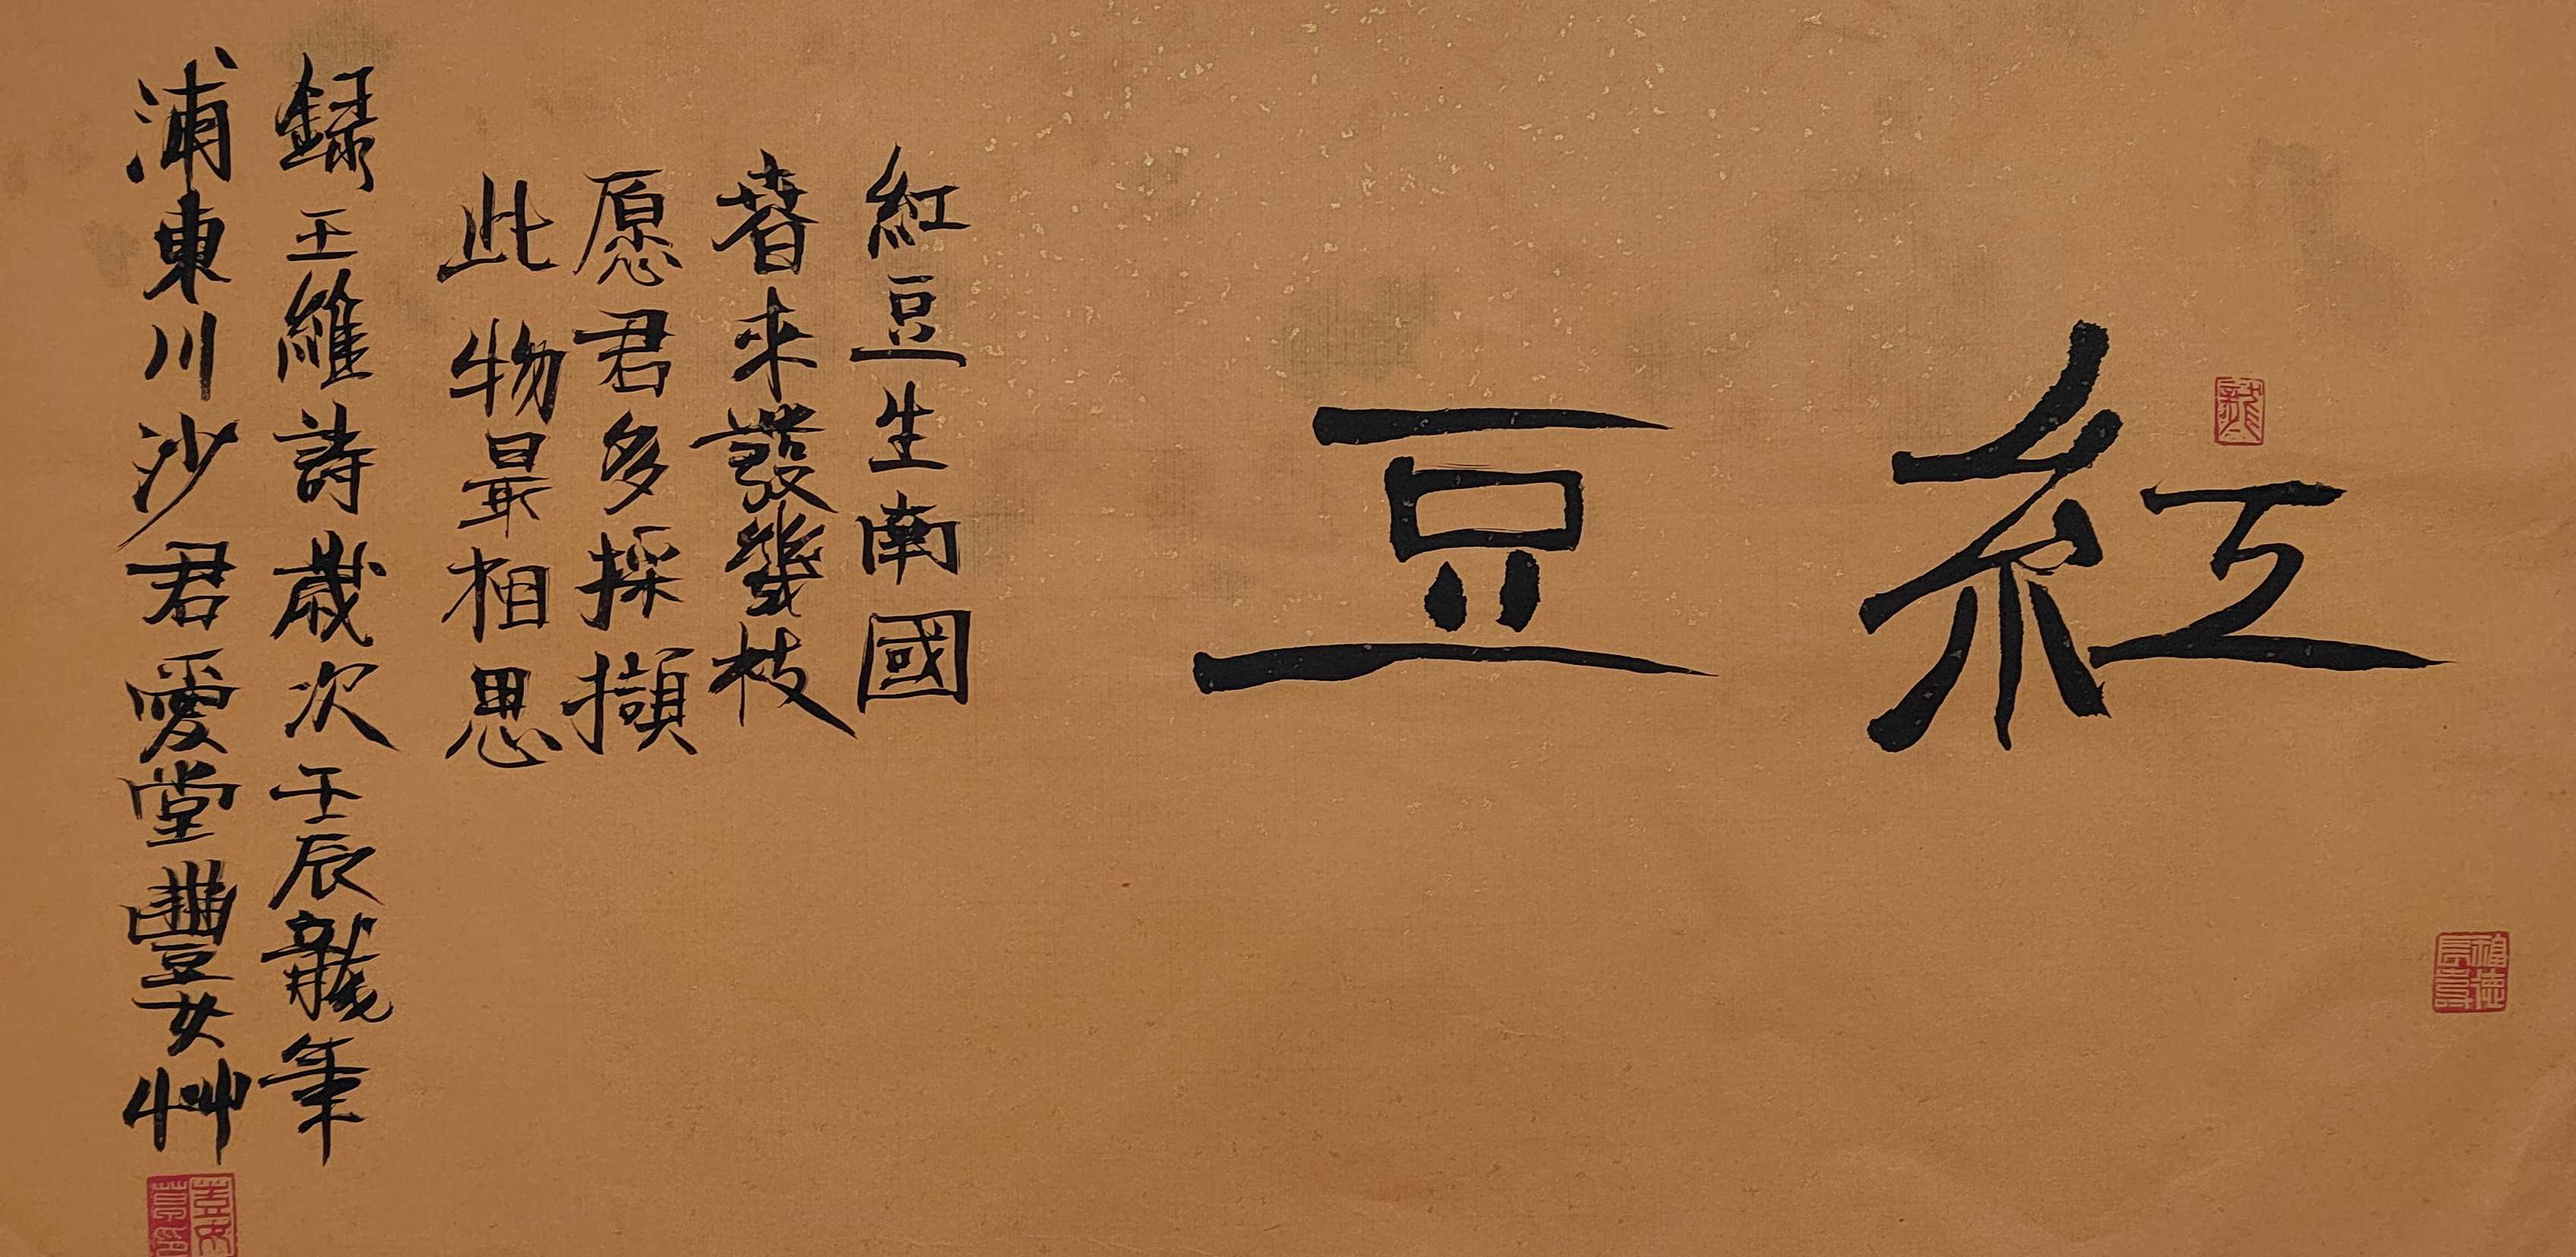 紅豆
紅豆生南國
春来發幾枝
愿君多採擷
此物最相思
録王維詩歲次壬辰龍年
浦東川沙君愛堂豐女艸
龍
福德長壽